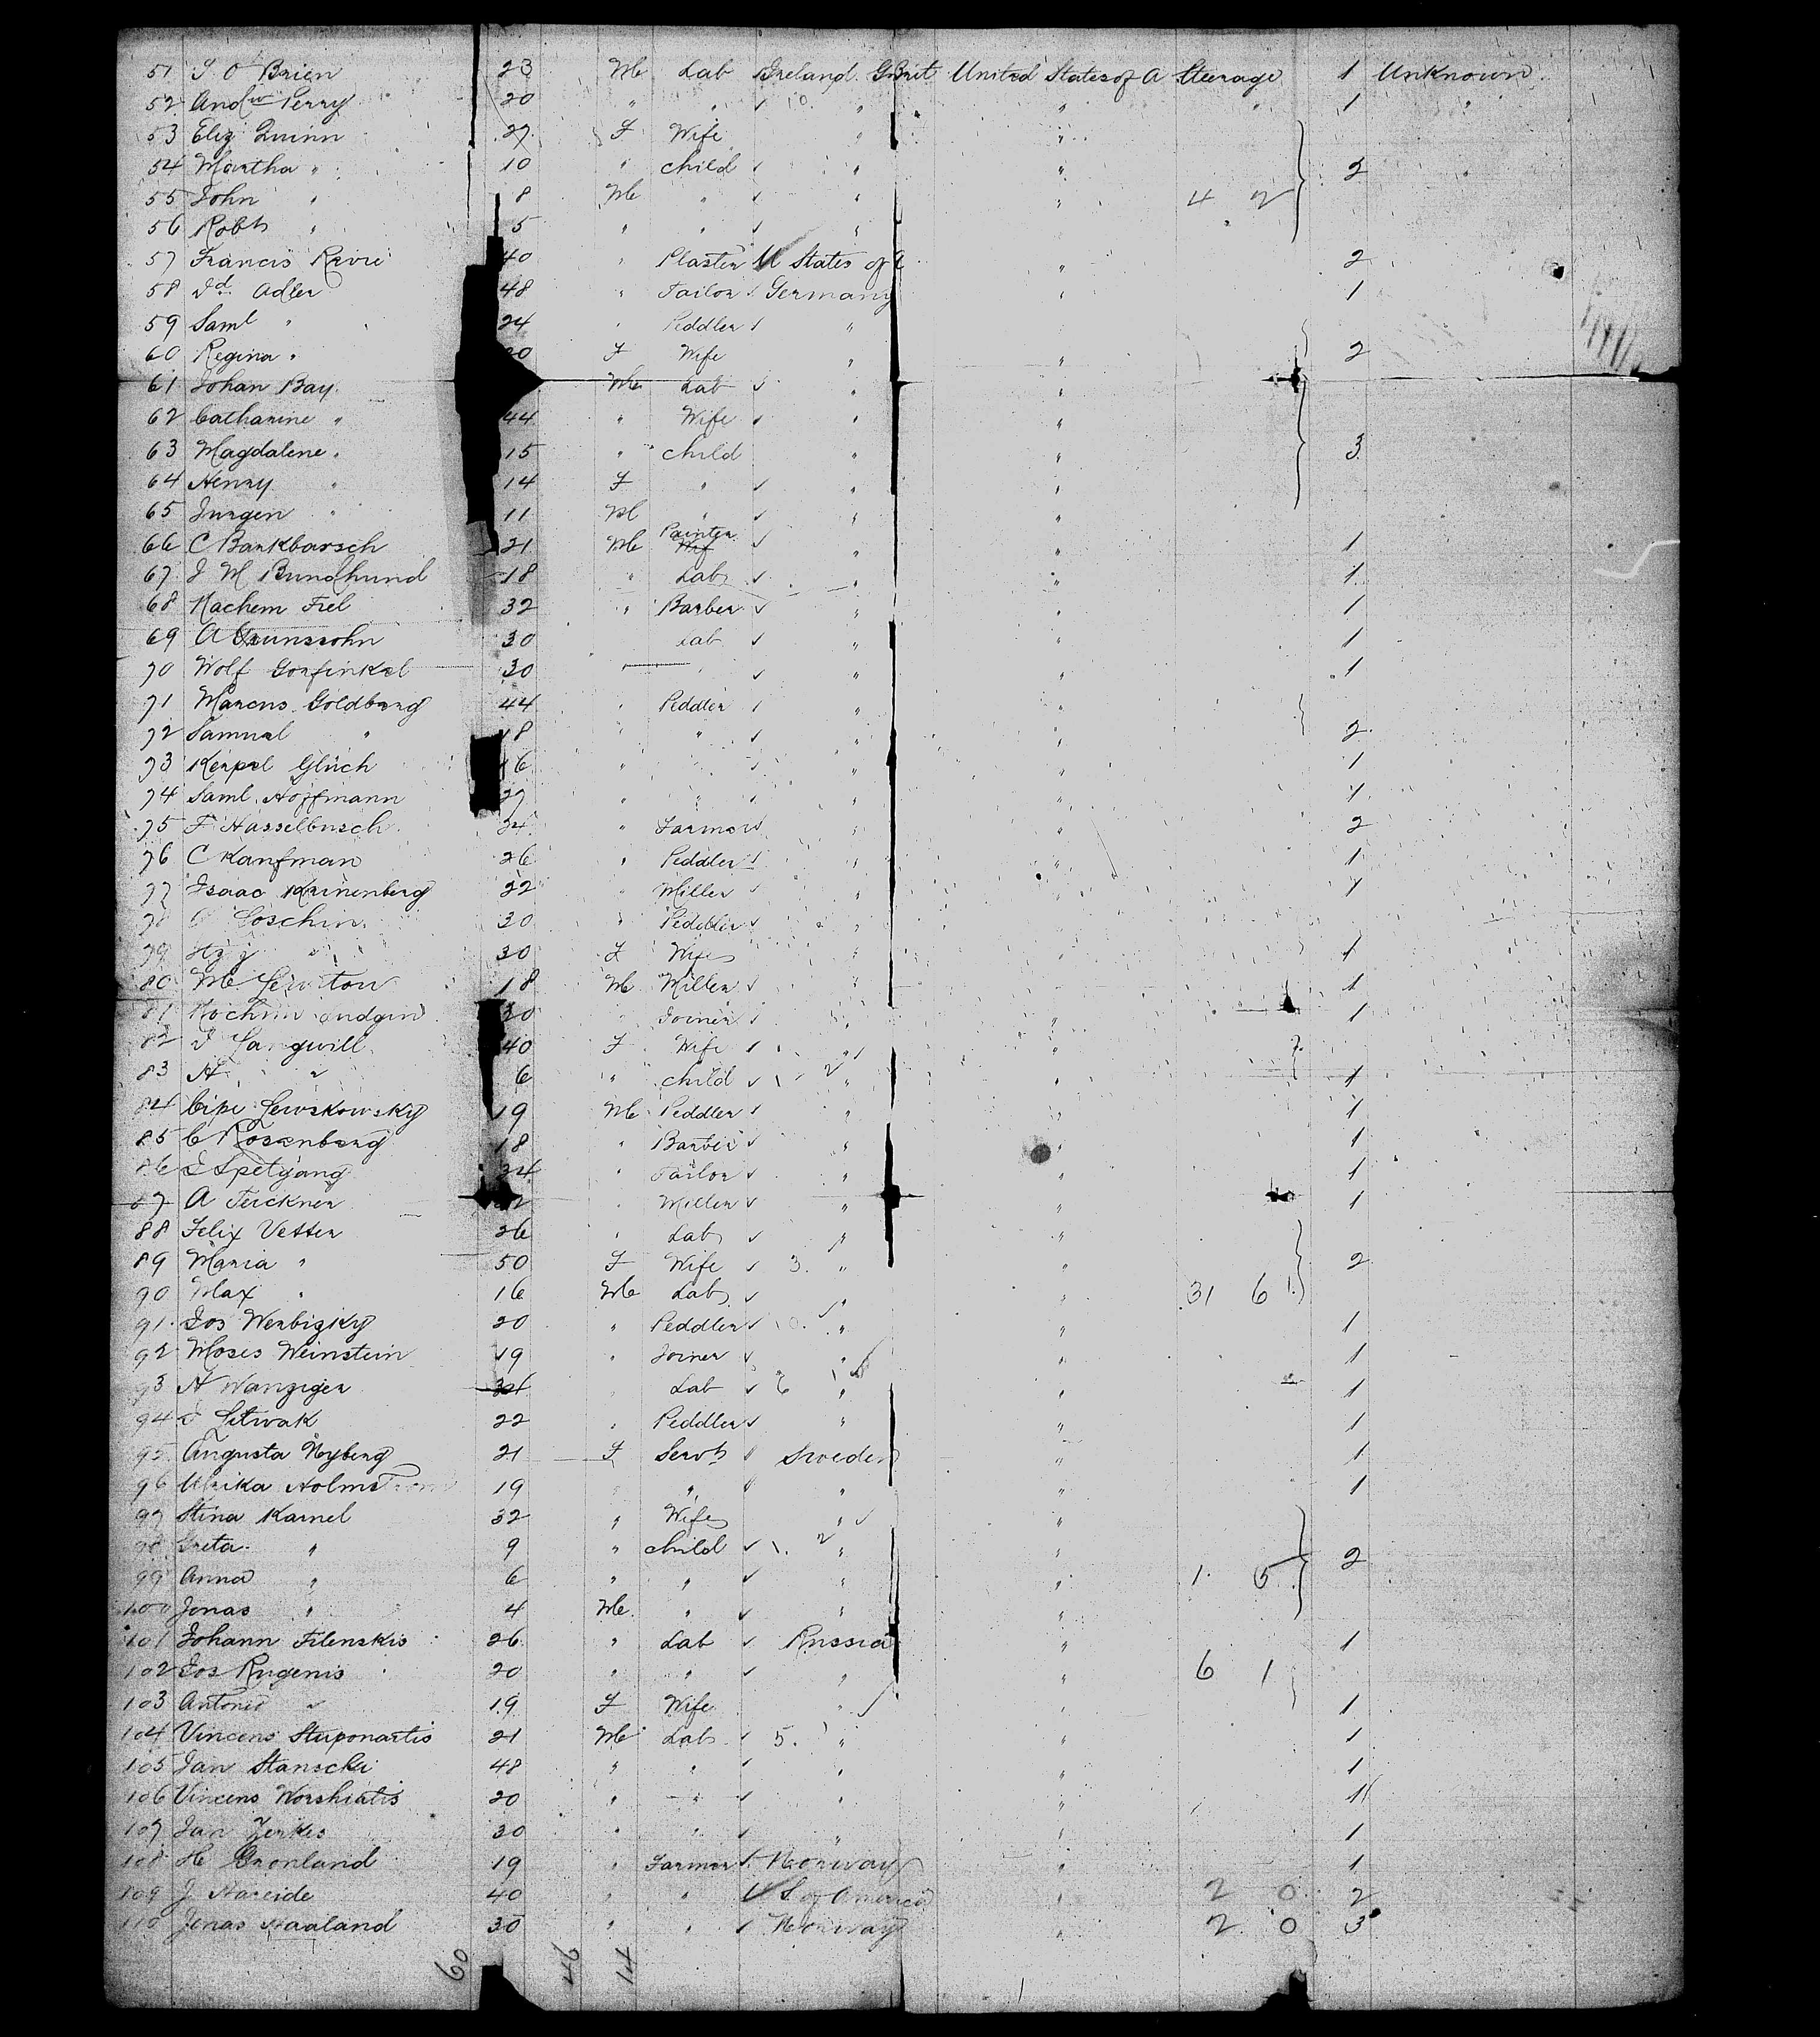 51 J O'Brien 23 M Lab Ireland G Brit United States of A Steerage 1 Unknown
52 Andw Perry 20 " " " " " 1 "
53 Eliz Quinn 27 F Wife " "
54 Martha " 10 " child " " 2 "
55 John " 8 M " " " 4 2
56 Robt " 5 " " "
57 Francis 40 " Plaster U States of A " 2
58 Dd Adler 48 " Tailor Germany " 1
59 Saml " 24 " Peddler "
60 Regina " F Wife " " 2
61 Johan Bay M Lab " "
62 Catharine " 44 " Wife " "
63 Magdalene " 15 " child " " 3
64 Henry " 14 F " " "
65 Jurgen " 11 M " " "
66 C Bankbarsch 21 M Painter " " 1
67 J M Bundhund 18 " Lab " " 1
68 Nachem Fiel 32 " Barber " " 1
69 A Grunssohn 30 Lab " " 1
70 Wolf Gorfinkel 30 " " " 1
71 Marcus Goldberg 44 " Peddler " "
72 Samuel " 18 " " " " 2
73 Kerpel Glück " " " 1
74 Saml Hoffmann 27 " " " " 1
75 F Hasselbusch 24 " Farmer " " 2
76 C Kaufman 26 " Peddler " " 1
77 Isaac Krinenberg 22 " Miller " " 1
78 Loschin 30 " Peddler "
79 " 30 F Wife " 1
80 M 18 M Miller " 1
81 Joiner " " 1
82 Langwill 40 F Wife " "
83 H " 6 " child " " 1
84 Cipe Lewskowsky 19 M Peddler " " 1
85 C Rosenberg 18 " Barber " " 1
86 Spetgang 34 " Tailor " " 1
87 A Feickner " Miller " " 1
88 Felix Vetter 26 " Lab " "
89 Maria " 50 F Wife 3 " " 2
90 Max " 16 M Lab " " 31 6
91 Jos Werbizky 20 " Peddler " " 1
92 Moses Weinstein 19 " Joiner " " 1
93 H Wanziger 34 " Lab 6 " " 1
94 Litwak 22 " Peddler " " 1
95 Augusta Nyberg 21 F Servt Sweden " 1
96 Ulrika 19 " " " " 1
97 Stina Karnel 32 " Wife " "
98 Greta " 9 " child " " 2
99 Anna " 6 " " " " 1 5
100 Jonas " 4 M " " "
101 Johann Filenskis 26 " Lab Russia " 1
102 Jos Rugenis 20 " " " " 6 1
103 Antonie " 19 F Wife " " 1
104 Vincens Stuponartis 21 M Lab 5 " " 1
105 Jan Stanscki 48 " " " " 1
106 Vincens Worshiatis 20 " " " " 1
107 Jan Zerkes 30 " " " " 1
108 H Gronland 19 " Farmer Norway " 1
109 J Hareide 40 " " U S of America " 2 0 2
110 Jonas Haaland 30 " " Norway " 2 0 3
60 46 14